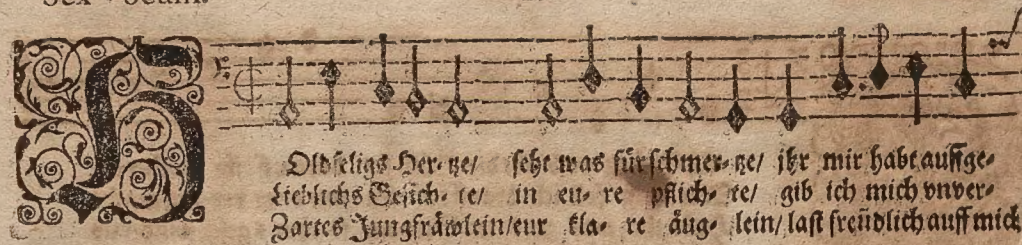 HOldseligs Her- tze/ seht was für schmer- tze/ jhr mir habt auffge-
Lieblichs Gesich- te/ in eu- re pflich- te/ gib ich mich vnver-
Zartes Jungfräwlein/eur kla- re äug- lein/ last freũdlich auff mich